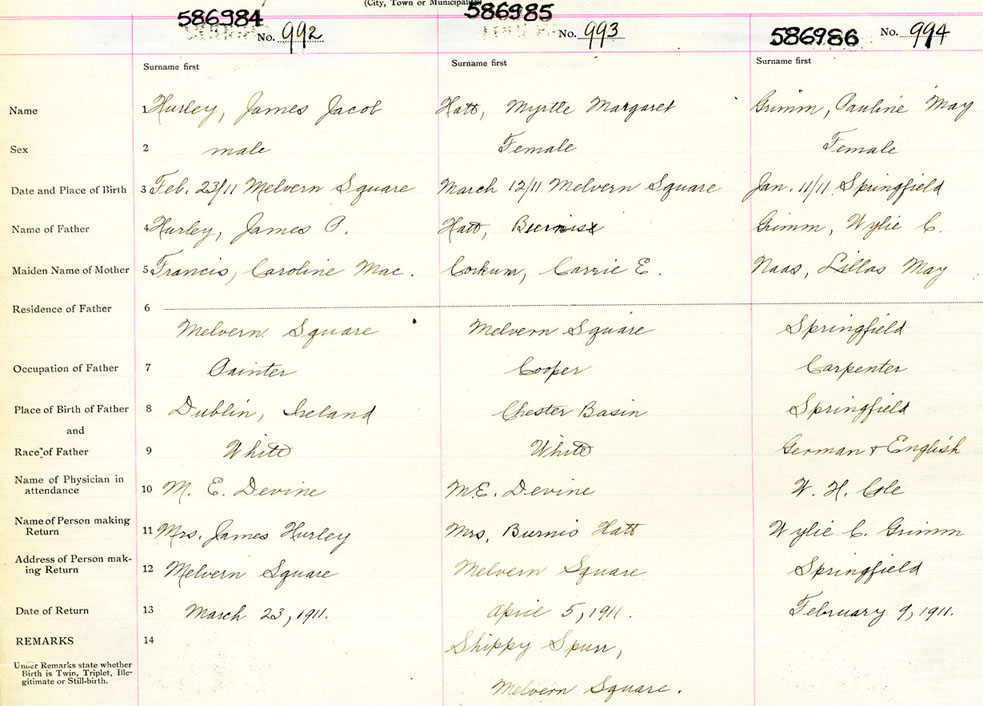 (City, Town or Municipal
586984 No. 992 586985 No. 993 586986 No. 994
Surname first Surname first Surname first
Name 1 Hurley, James Jacob Hatt, Myrtle Margaret Grimm, Pauline May
Sex 2 male Female Female
Date and Place of Birth 3 Feb. 23/11 Melvern Square March 12/11 Melvern Square Jan. 11/11 Springfield
Name of Father 4 Hurley, James P. Hatt, Burnis Grimm, Wylie C.
Maiden Name of Mother 5 Francis, Caroline Mac. Corkum, Carrie E. Naas, Lillas May
Residence of Father 6
Melvern Square Melvern Square Springfield
Occupation of Father 7 Painter Cooper Carpenter
Place of Birth of Father 8 Dublin, Ireland Chester Basin Springfield
and
Race of Father 9 White White German & English
Name of Physician in
attendance 10 M. E. Devine M.E. Devine W. H. Cole
Name of Person making
Return 11 Mrs. James Hurley Mrs, Burnis Hatt Wylie C. Grimm
Address of Person mak-
ing Return 12 Melvern Square Melvern Square Springfield
Date of Return 13 March 23, 1911. April 5, 1911. February 9, 1911.
REMARKS 14 Shippy Spurr,
Under Remarks state whether
Birth is Twin, Triplet, Ille-
gitimate or Still-birth.
Melvern Square.